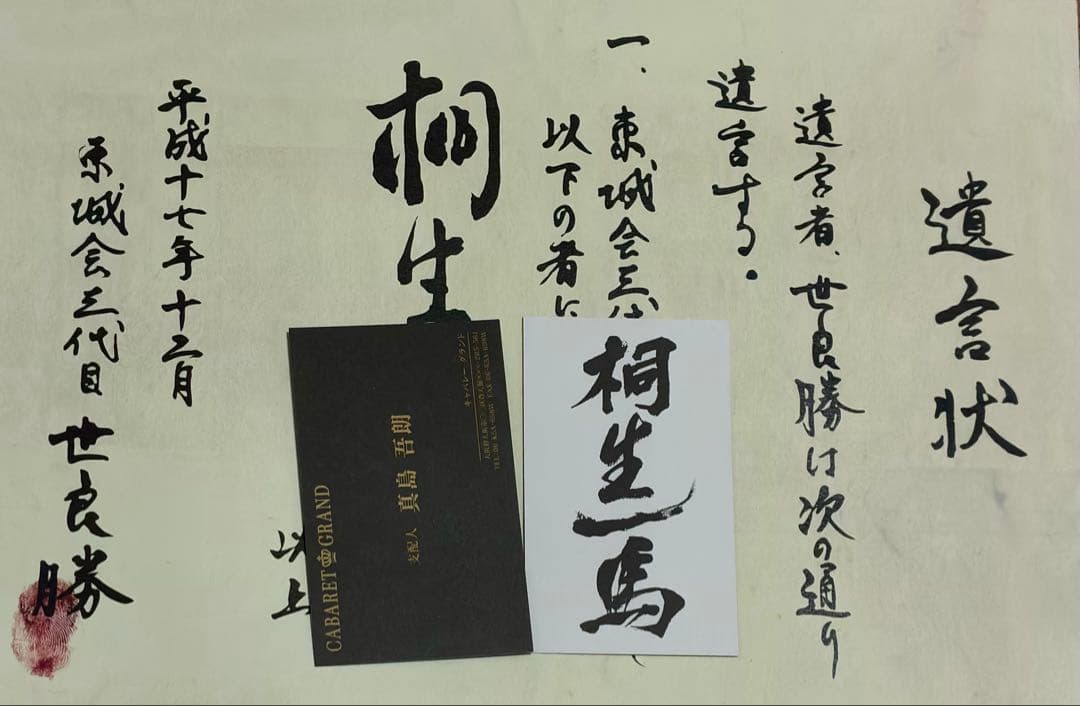 遺言状
遺言者、世良勝は次の通り
遺言する。
一、東城会三代
以下の者に
桐生
以上
平成十七年十二月
東城会三代目 世良勝
桐生一馬
キャバレー グランド
支配人 真島 吾朗
CABARET GRAND